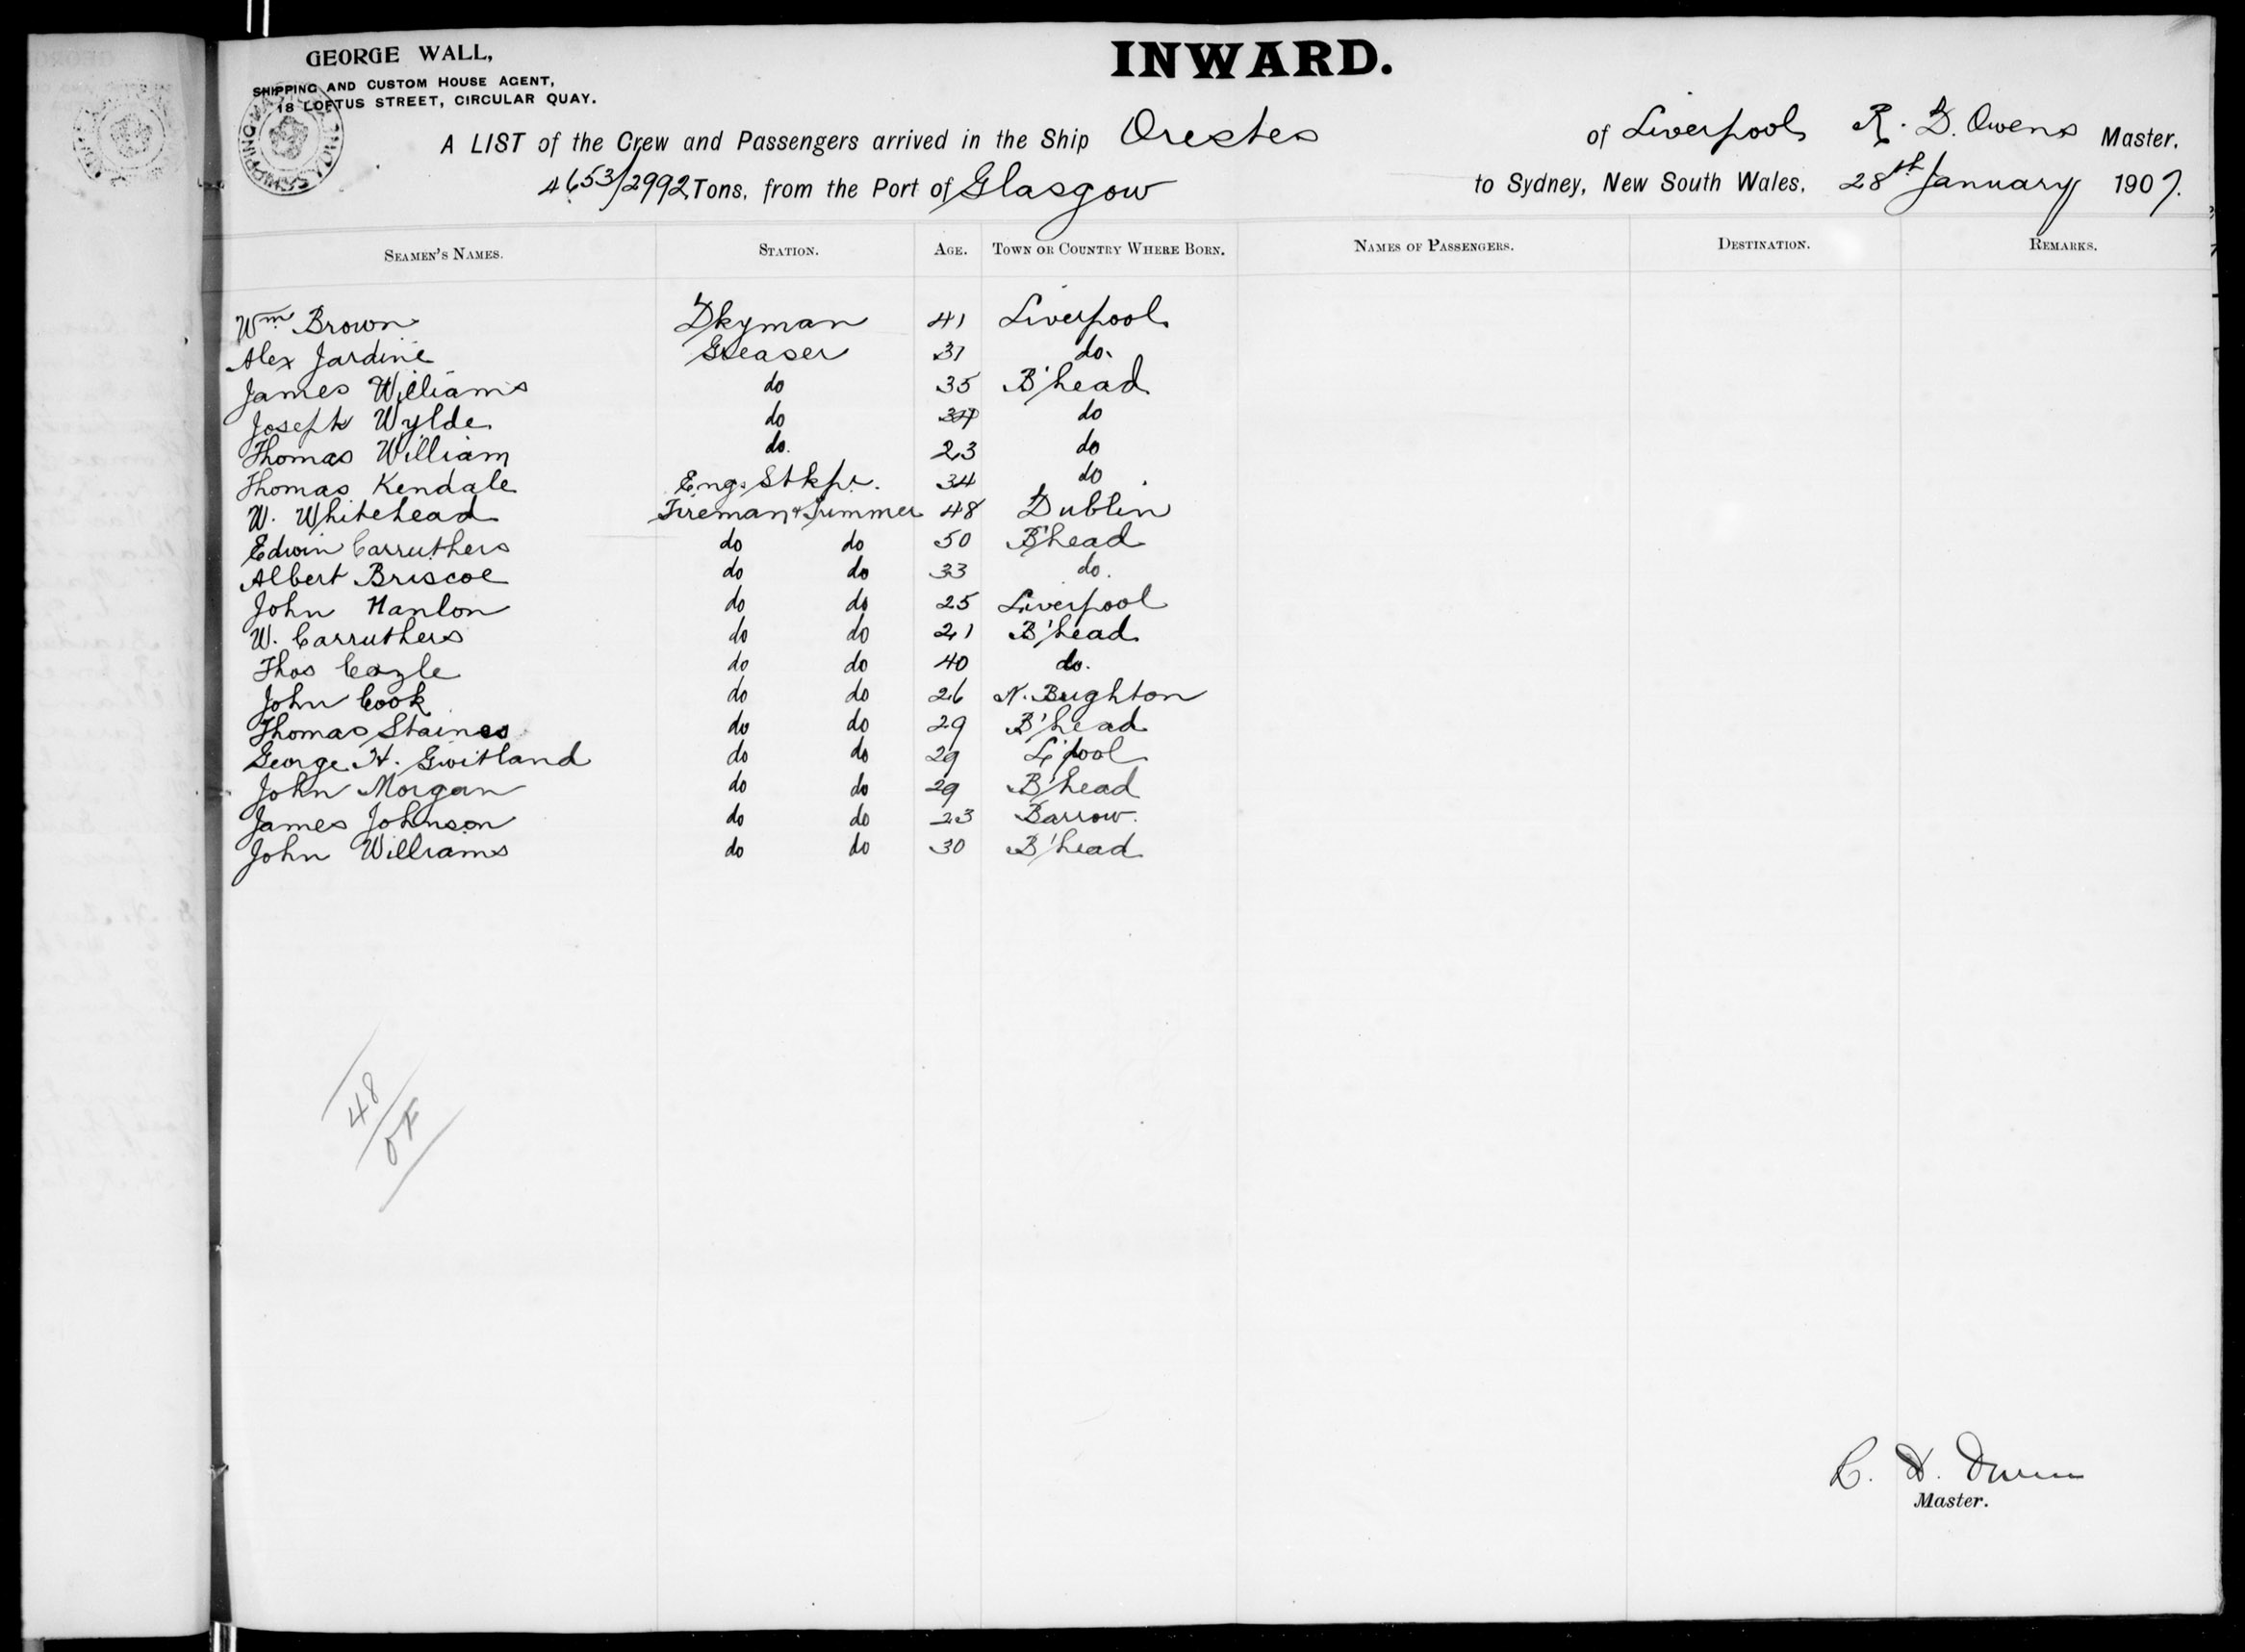 GEORGE WALL,
SHIPPING AND CUSTOM HOUSE AGENT,
18 LOFTUS STREET, CIRCULAR QUAY.
INWARD.
A LIST of the Crew and Passengers arrived in the Ship Orestes of Liverpool R. D. Owens Master.
4653/2992 Tons, from the Port of Glasgow to Sydney, New South Wales, 28th January 1907.
SEAMEN'S NAMES. STATION. AGE. TOWN OR COUNTRY WHERE BORN. NAMES OF PASSENGERS. DESTINATION. REMARKS.
Wm Brown Dkyman 41 Liverpool
Alex Jardine Greaser 31 do.
James Williams do 35 B'head
Joseph Wylde do do
Thomas William do. 23 do
Thomas Kendale Eng. Stkpr. 34 do
W. Whitehead Fireman & Trimmer 48 Dublin
Edwin Carruthers do do 50 B'head
Albert Briscoe do do 33 do.
John Hanlon do do 25 Liverpool
W. Carruthers do do 21 B'head
Thos do do 40 do.
John Cook do do 26 N. Brighton
Thomas Staines do do 29 B'head
George H. Gwitland do do 29 L'pool
John Morgan do do 29 B'head
James Johnson do do 23 Barrow.
John Williams do do 30 B'head
48
R. D. Owen
Master.